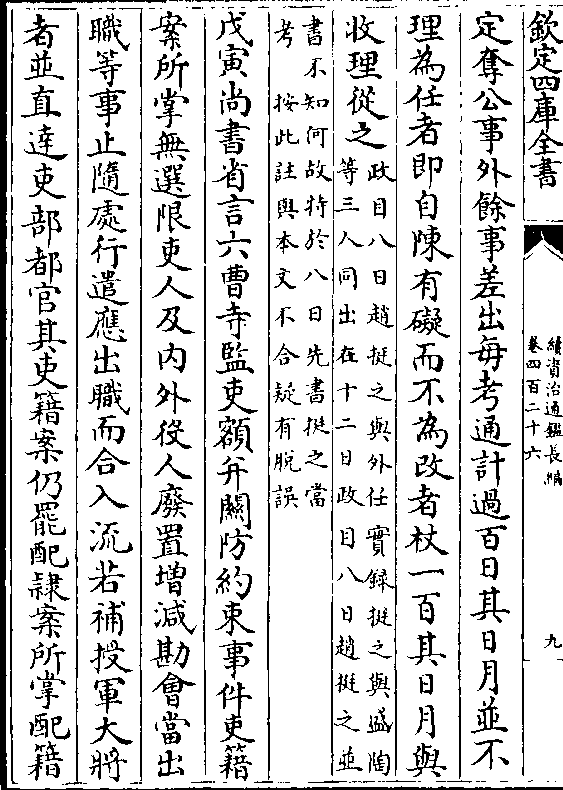 欽定四庫全書
續資治通鑑長編
卷四百二十六
九
定奪公事外餘事差出每考通計過百日其日月並不
理為任者即自陳有礙而不為改者杖一百其日月與
收理從之
政目八日趙挺之與外任實録挺之與盛陶
等三人同出在十二日政目八日趙挺之並
書不知何故特於八日先書挺之當
考 按此註與本文不合疑有脱誤
戊寅尚書省言六曹寺監吏額并關防約束事件吏籍
案所掌無選限吏人及内外役人廢置增減勘會當出
職等事止隨處行遣應出職而合入流若補授軍大將
者並直達吏部都官其吏籍案仍罷配隷案所掌配籍